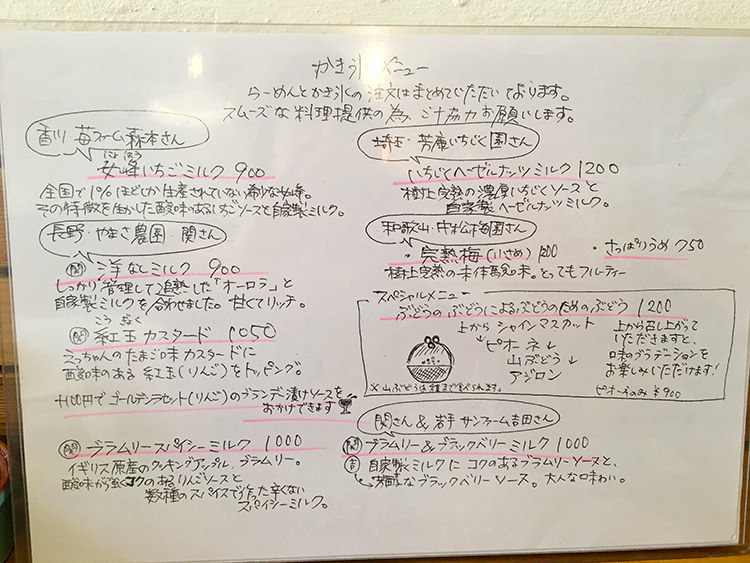 かき氷メニュー
らーめんとかき氷の注文はまとめていただいております。
スムーズな料理提供の為、ご協力お願いします。
香川 苺ファーム森本さん
にょほう
女峰いちごミルク 900
全国で1%ほどしか生産されていない希少な女峰。
その特徴を生かした酸味のあるいちごソースと自家製ミルク。
長野・やまさ農園・関さん
関 洋なしミルク 900
しっかり管理して追熟した「オーロラ」と
自家製ミルクを合わせました。甘くてリッチ。
こうぎょく
関 紅玉カスタード 1050
えっちゃんのたまご味カスタードに
酸味のある紅玉(りんご)をトッピング。
+100円でゴールデンラセット(りんご)のブランデー漬けソースを
おかけできます
関 ブラムリースパイシーミルク 1000
イギリス原産のクッキングアップル、ブラムリー。
酸味が強くコクのあるりんごソースと
数種のスパイスで作った辛くない
スパイシーミルク。
埼玉・芳庵いちじく園さん
いちじくヘーゼルナッツミルク 1200
極上完熟の濃厚いちじくソースと
自家製ヘーゼルナッツミルク。
和歌山・中松梅園さん
・完熟梅(小さめ) 1200
・さっぱりうめ 750
極上完熟の本体 の味。とってもフルーティー
スペシャルメニュー
ぶどうのぶどうによるぶどうのためのぶどう 1200
上から シャインマスカット
↓
ピオーネ
↓
山ぶどう
↓
アジロン
上から召し上がって
いただきますと、
味のグラデーションを
お楽しみいただけます!
※山ぶどうは種まで食べられます。
ピオーネのみ ¥900
関さん&岩手 サンファーム吉田さん
関 ブラムリー&ブラックベリーミルク 1000
吉 自家製ミルクに コクのあるブラムリーソースと、
芳醇なブラックベリーソース。大人な味わい。